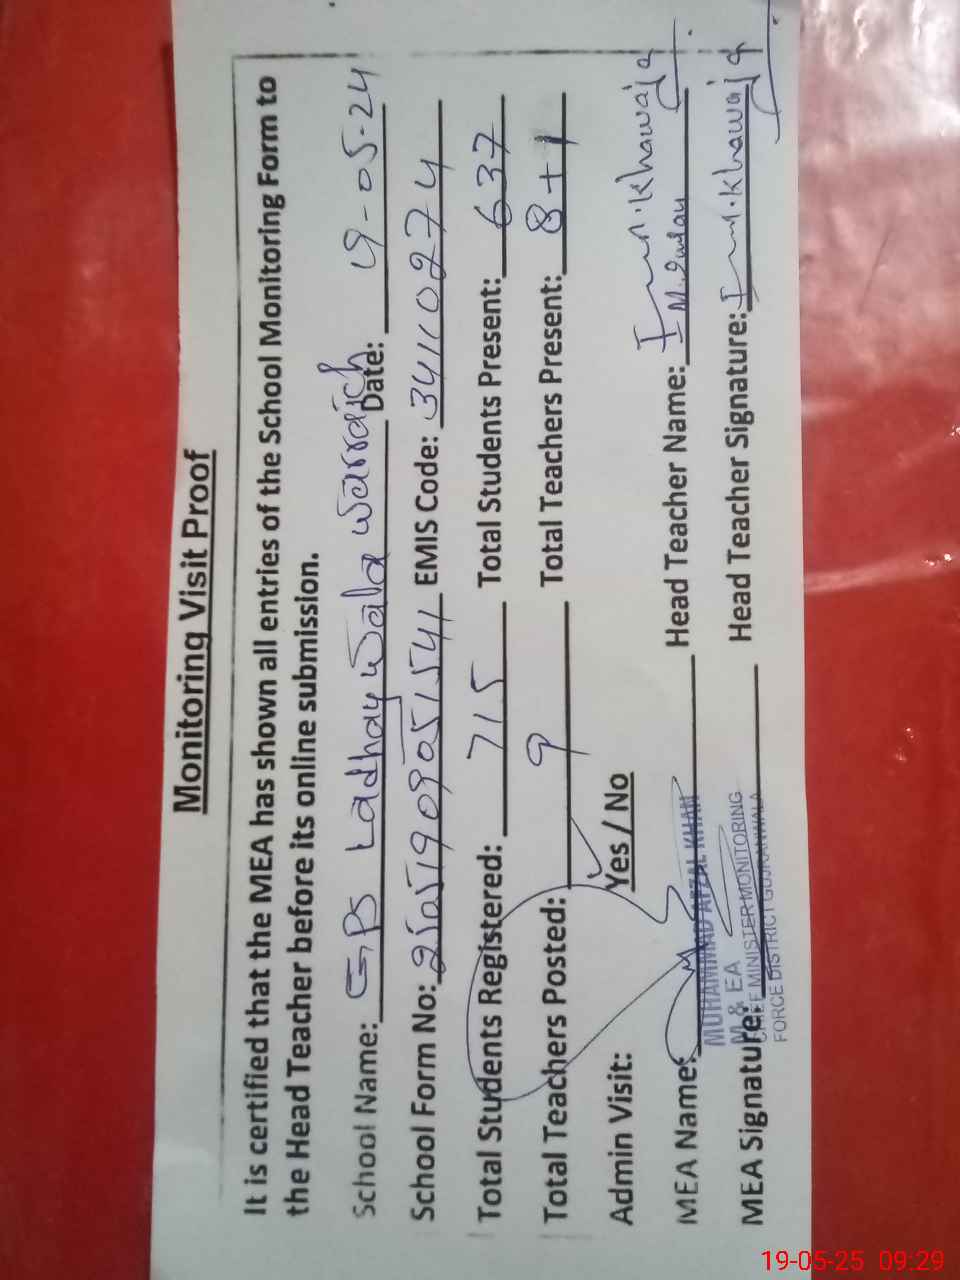 Monitoring Visit Proof
It is certified that the MEA has shown all entries of the School Monitoring Form to
the Head Teacher before its online submission.
School Name: GPS Ladhaywala warraich Date: 19-05-24
School Form No: 25051909051541 EMIS Code: 34110274
Total Students Registered: 715 Total Students Present: 637
Total Teachers Posted: 9 Total Teachers Present: 8+1
Admin Visit: Yes / No
MEA Name: MUHAMMAD AFZAL KHAN Head Teacher Name: Khawaja
M & EA
MEA Signature: Head Teacher Signature: Khawaja
CHIEF MINISTER MONITORING
FORCE DISTRICT GUJRANWALA
19-05-25 09:29